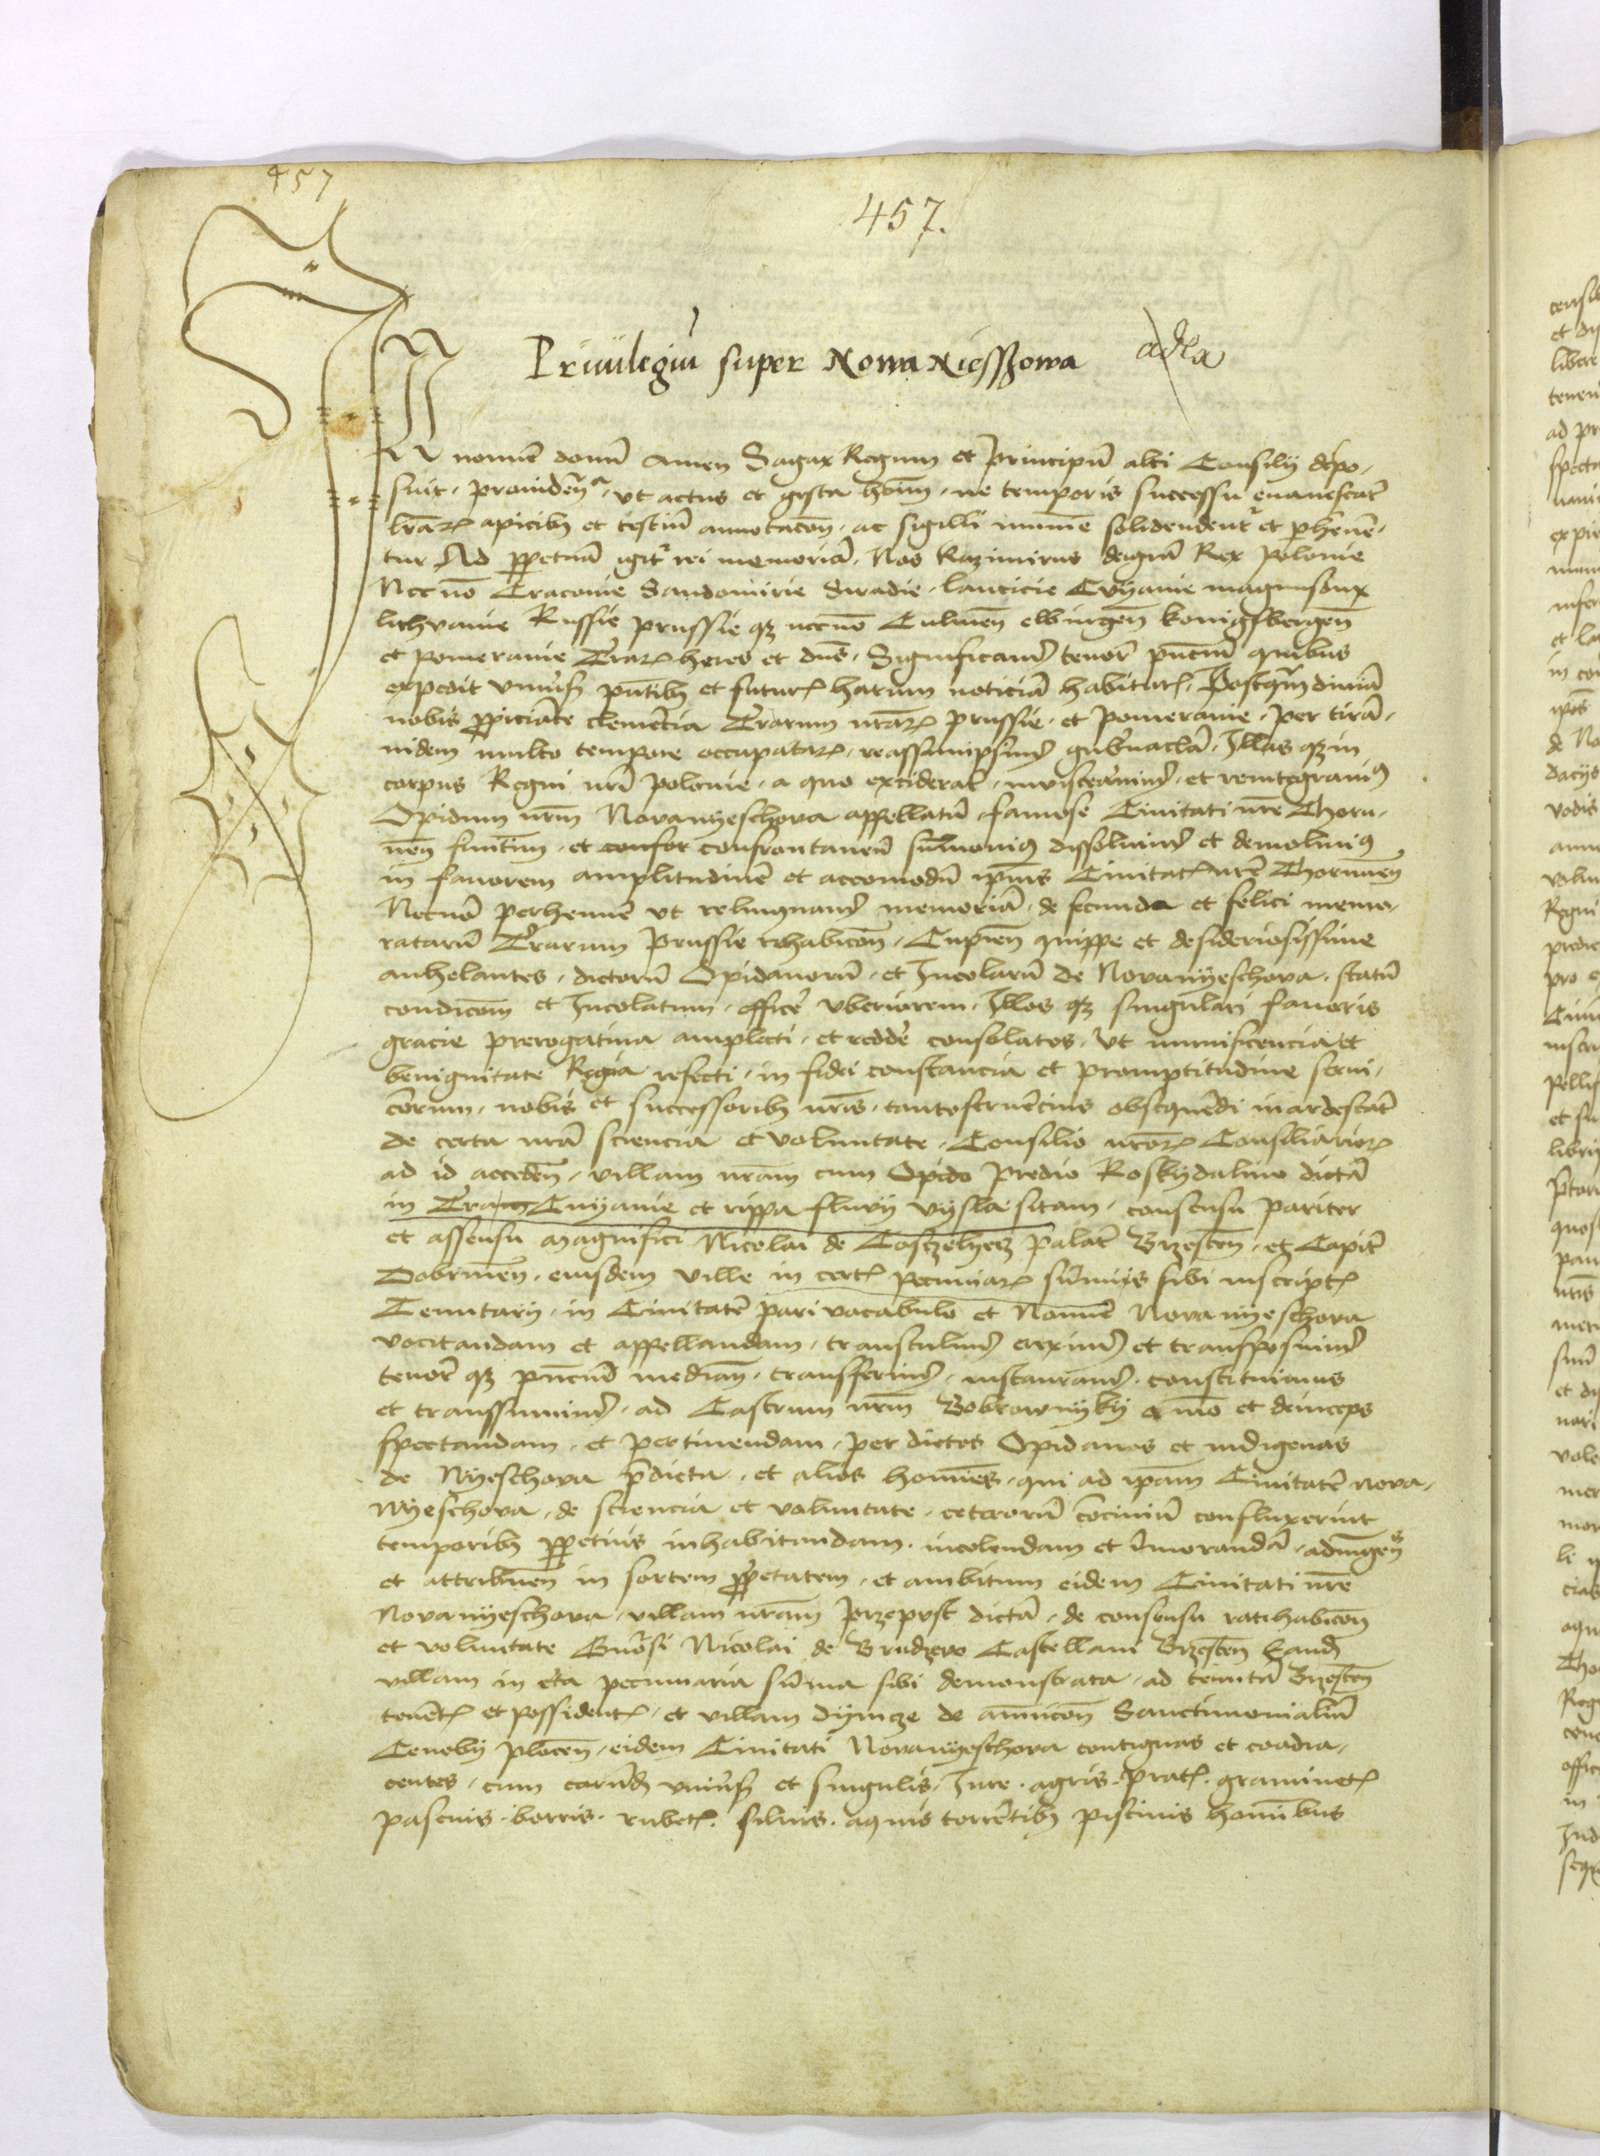 457
457.
Priuilegiu super Nowa Niesszowa
In nomie domi Amen Sagax Regum et Principu alti Consilij dispo,
suit, prouidena, vt actus et gesta hoim, ne temporis successu euanescat
lrarz apicib et testiu annotacon, ac sigilli solidendent et phenne,
tur Ad ppetua igit rei memoria, Nos Kazimirus deigra Rex Polonie
Necno Cracouie Sandomirie Siradie, lancicie Cuyauie magnusdux
lithvanie Russie prussie qz necno Culmen elbingen konigsbergen
et pomeranie Trarz heres et dns, Significam tenor pncm quibus
expedit vniuss pntib et futur harum noticia habitur, Postqm diuia
nobis ppiciate clemecia Trarum nrarz prussie, et pomeranie, per tira,
nidem multo tempore occupatarz, reassumpsim gubnacla, Illas qz in
corpus Regni nri polonie, a quo exciderat, inuisceauim, et reintegrauim
Opidum nrm Novanyeschova appellatu, famose Ciuitati nre Thoru,
nen finitim, et confor confrontaneu dissoluim et demolim
in fauorem amplitudine et accomodu ipius Ciuitat nre Thorunen
Necno perhenne vt relinquam memoria, de fecunda et felici memo,
rataru Trarum Prussie rehabicon, Cupien quippe et desideriosissime
anhelantes, dictoru Opidanoru, et Incolaru de Novanyeschova, statu
condicom et Incolatum, effice vberiorem, Illos qz singulari fauoris
gracie prerogatiua amplecti, et redde consolatos, vt munificencia et
benignitate Regia refecti, in fidei constancia et promptitudine serui,
corum, nobis et successorib nris, tanto feruecius obsequedi inardescat
de certa nra sciencia et voluntate, Consilio nrorz Consiliariorz
ad id acceden, villam nram cum Opido Predio Roskydalino dicta
in Tra Cuyauie et rippa fluuy vysla sitam, consensu pariter
et assensu Magnifici Nicolai de Coszyelyecz palat Brzesten, et Capit
Dobrinen, eiusdem ville in cert pecuniarz sumys sibi inscript
Tenutary, in Ciuitate pari vocabulo et Nomie Nova nyeschova
vocitandam et appellandam, transtulim ereximus et transposuim
tenor qz pncm median, transferim, instauram, constituimus
et transsumim, ad Castrum nrm Bobrowniky ex nuc et deinceps
spectandam, et pertinendam, per dictos Opidanos et indigenas
de Nyeschova pdicta, et alios homies, qui ad ipam Ciuitate nova,
Nyeschova, de sciencia et voluntate, ceteroru cociuiu confluxerint
temporib ppetuis inhabitandam, incolendam et imoranda,
et attribuen in sortem ppetatem, et ambitum eidem Ciuitati nre
Novanyeschova, villam nram Przepust dicta, de consensu ratihabicon
et voluntate Gnosi Nicolai de Brudzewo Castellani Brzesten Eand
villam in cta pecuniaria suma sibi demonstrata, ad tenuta Brzesten
tenet et possident, et villam dymcze de amicon Sanctimonialiu
Cenoby plocen, eidem Ciuitati Novanyeschova contiguas et coadia,
centes, cum earund vniuss et singulis, Iure, agris, prat, graminet
pascuis, borris, rubet, siluis, aquis torretib piscinis homibus